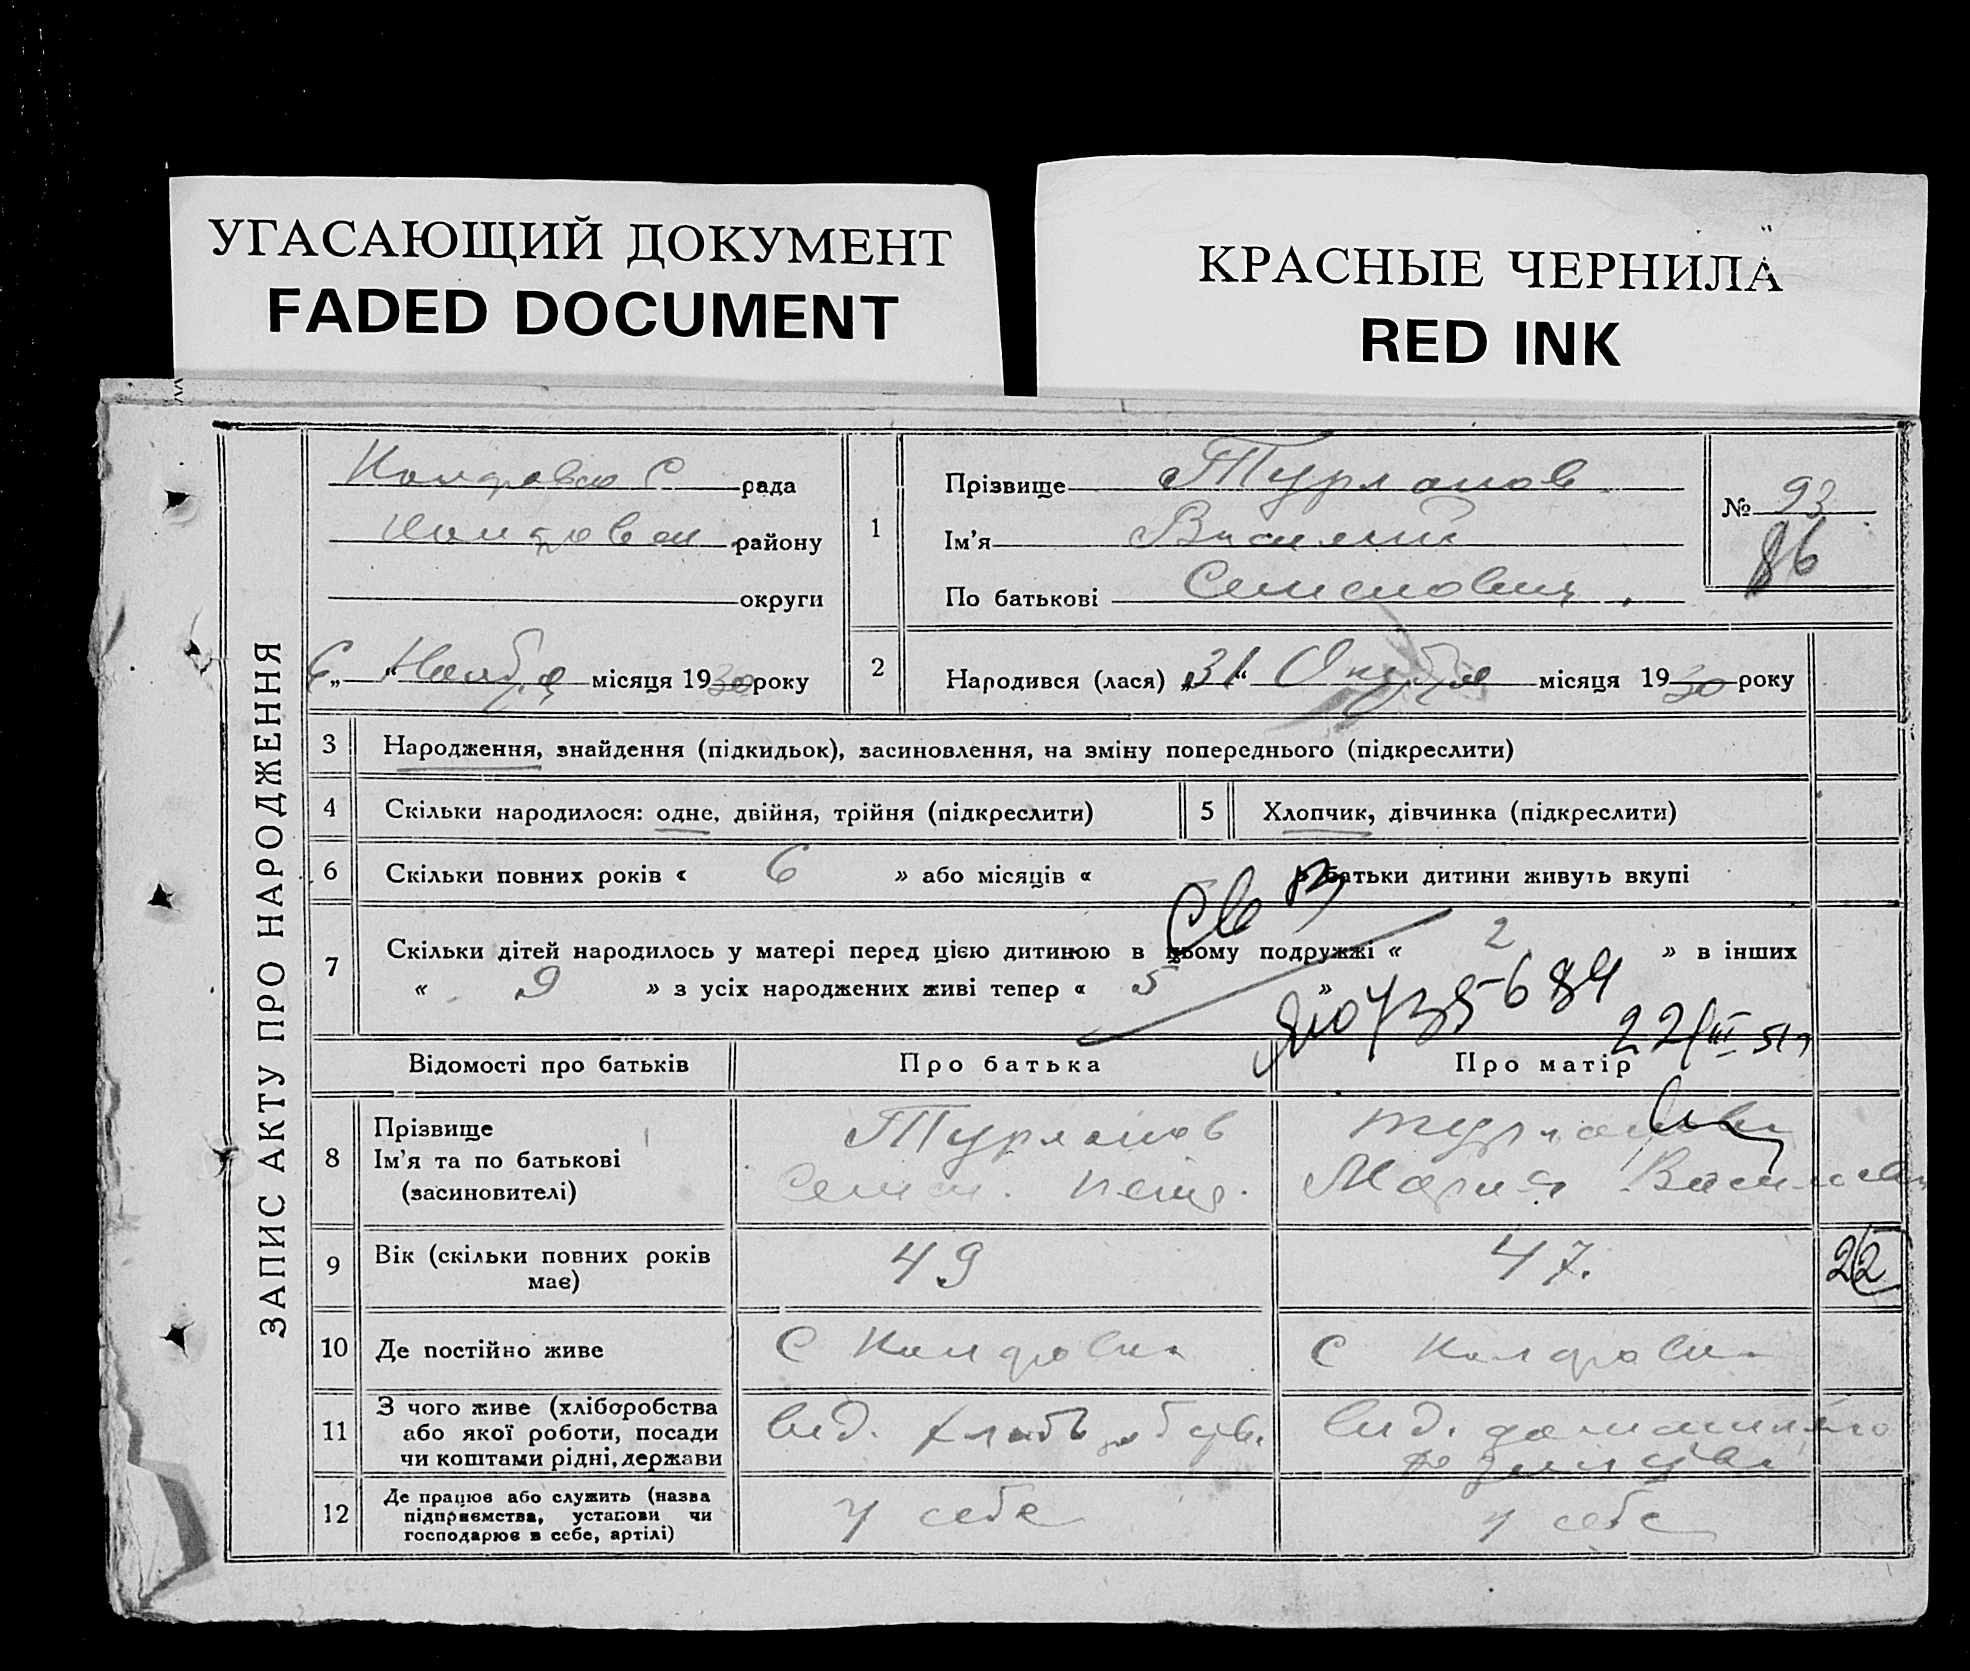 УГАСАЮЩИЙ ДОКУМЕНТ
FADED DOCUMENT
КРАСНЫЕ ЧЕРНИЛА
RED INK
ЗАПИС АКТУ ПРО НАРОДЖЕННЯ
рада
району
округи
6 „ “ Ноября місяця 1930 року
1
Прізвище Турланов
Ім'я Василий
По батькові Семенович
№ 93
86
2
Народився (лася) „31“ Октября місяця 1930 року
3 Народження, знайдення (підкидьок), засиновлення, на зміну попереднього (підкреслити)
4 Скільки народилося: одне, двійня, трійня (підкреслити)
5 Хлопчик, дівчинка (підкреслити)
6 Скільки повних років « 6 » або місяців « » батьки дитини живуть вкупі
7 Скільки дітей народилось у матері перед цією дитиною в цьому подружжі « 2 » в інших
« 9 » з усіх народжених живі тепер « 5 »
22/III 51
Відомості про батьків
Про батька
Про матір
8
Прізвище
Ім'я та по батькові
(засиновителі)
Турланов
Семен. Петр.
Турланова
Мария
9
Вік (скільки повних років
має)
49
47.
22
10 Де постійно живе
11
З чого живе (хліборобства
або якої роботи, посади
чи коштами рідні, держави
12
Де працює або служить (назва
підприємства, установи чи
господарює в себе, артілі)
у себе
у себе